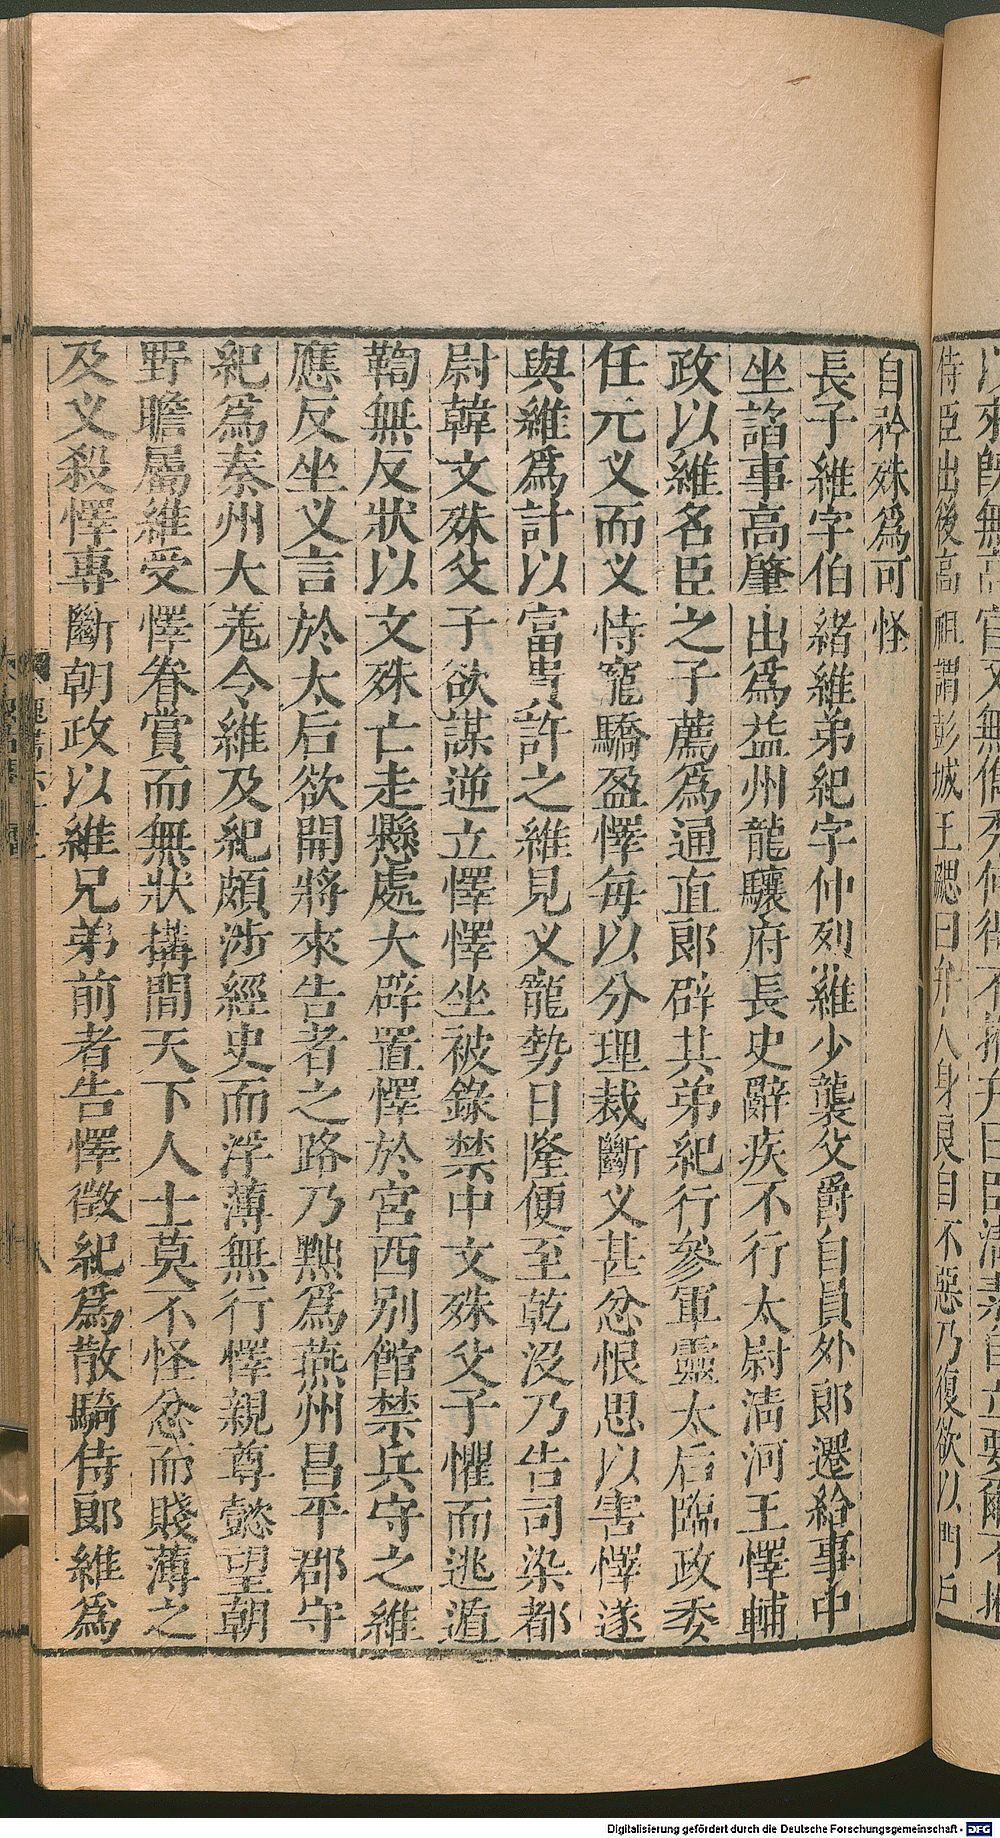 侍臣出後高祖謂彭城王勰曰弁人身良自不惡乃復欲以門戶
自矜殊為可怪
長子維字伯緒維弟紀字仲列維少襲父爵自員外郎遷給事中
坐諂事高肇出為益州龍驤府長史辭疾不行太尉清河王懌輔
政以維名臣之子薦為通直郎辟其弟紀行參軍靈太后臨政委
任元义而义恃寵驕盈懌每以分理裁斷义甚忿恨思以害懌遂
與維為計以富貴許之維見义寵勢日隆便至乾沒乃告司染都
尉韓文殊父子欲謀逆立懌懌坐被錄禁中文殊父子懼而逃遁
鞫無反狀以文殊亡走懸處大辟置懌於宮西別館禁兵守之維
應反坐义言於太后欲開將來告者之路乃黜為燕州昌平郡守
紀為秦州大羗令維及紀頗涉經史而浮薄無行懌親尊懿望朝
野瞻屬維受懌眷賞而無狀搆間天下人士莫不怪忿而賤薄之
及义殺懌專斷朝政以維兄弟前者告懌徵紀為散騎侍郎維為
Digitalisierung gefördert durch die Deutsche Forschungsgemeinschaft - DFG